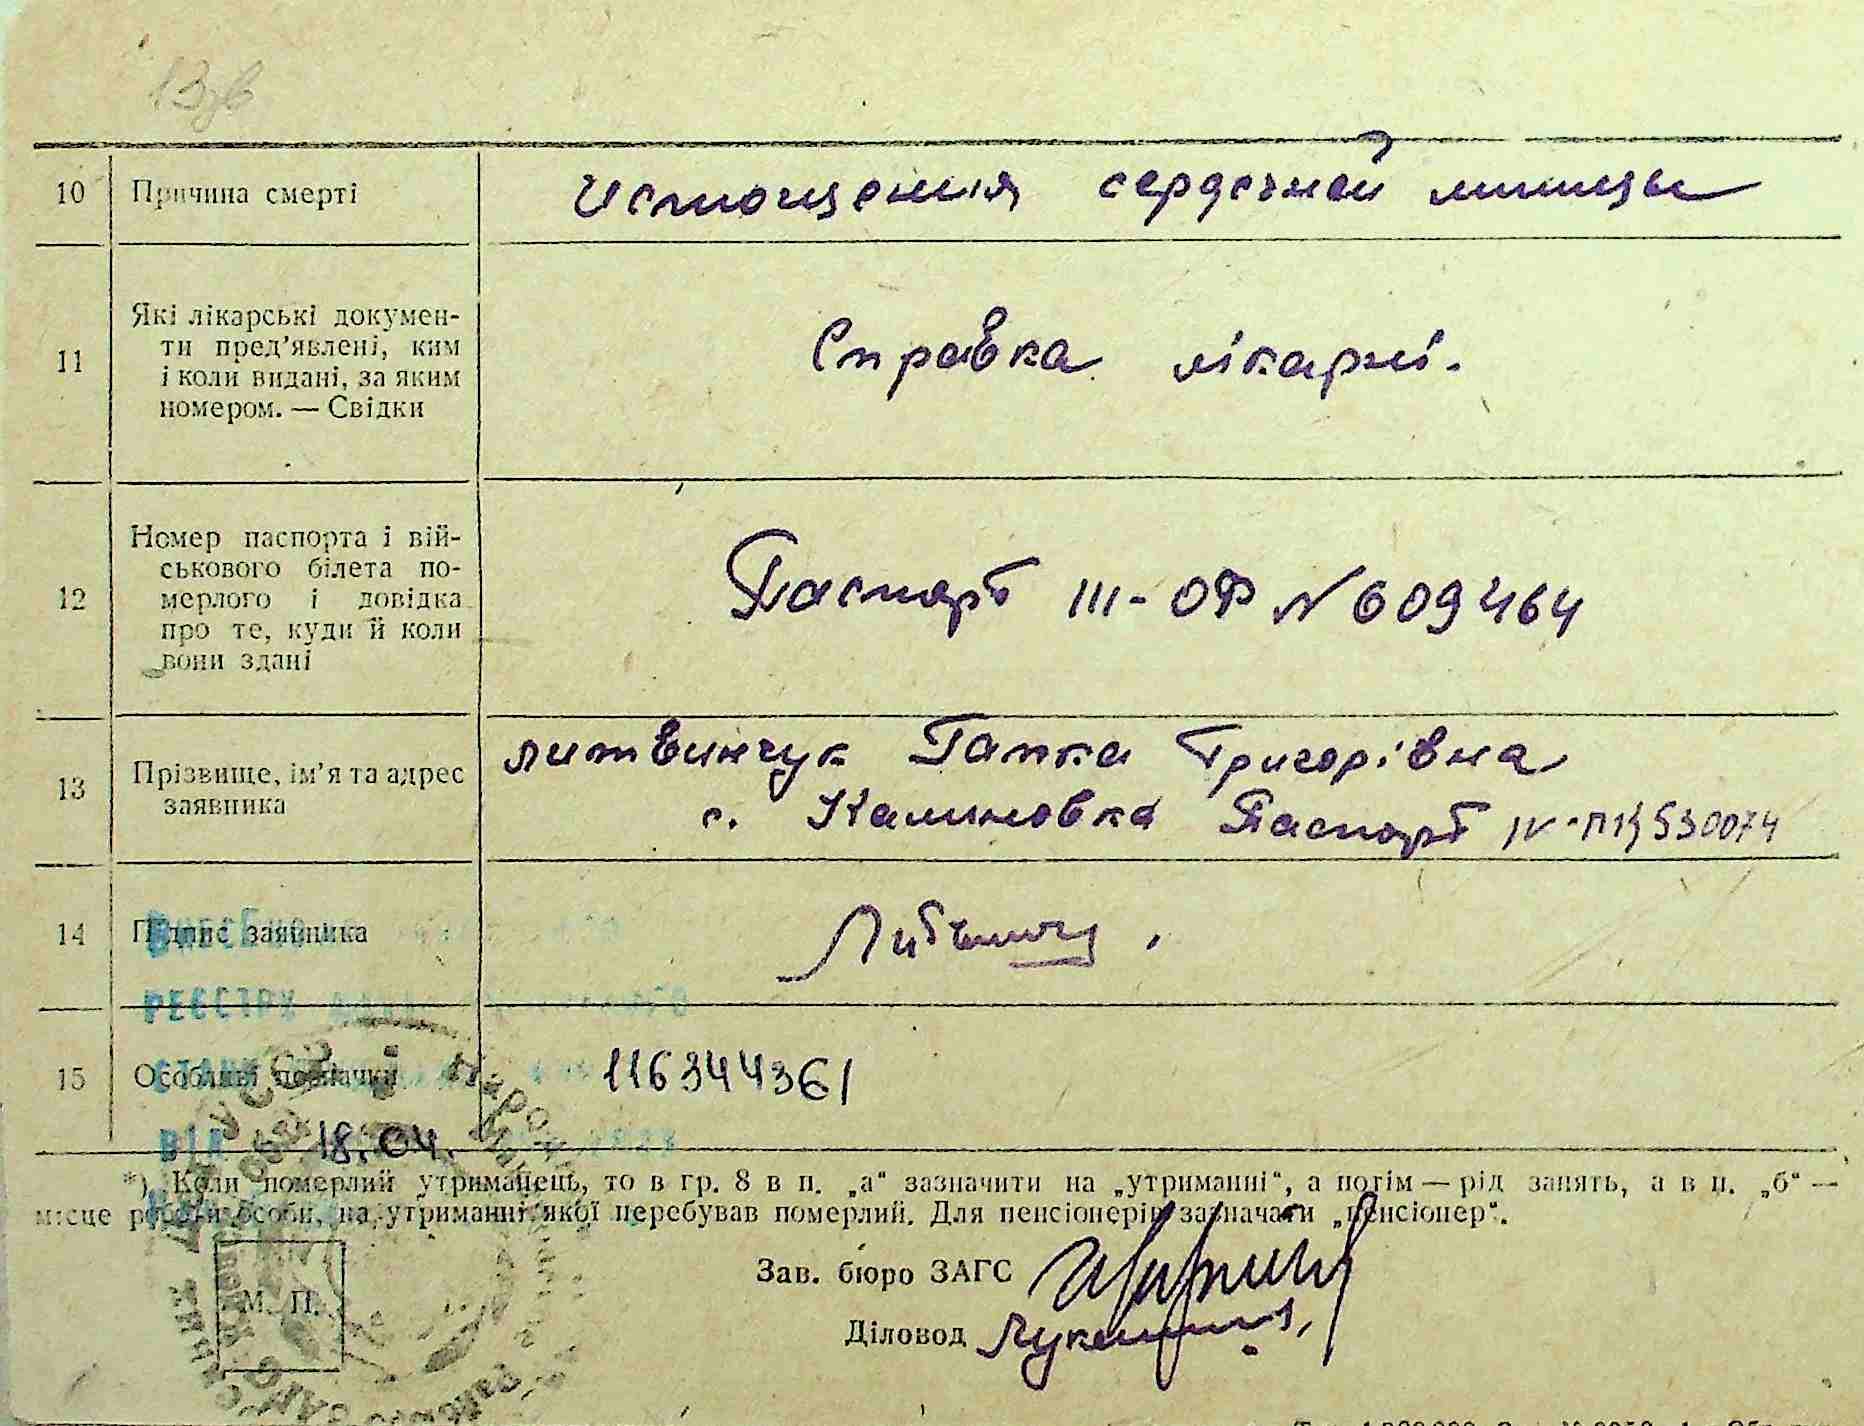 13зв
10 Причина смерті Истощения сердечной мышцы
11 Які лікарські докумен-
ти пред’явлені, ким
і коли видані, за яким
номером. — Свідки
Справка лікарні.
12 Номер паспорта і вій-
ськового білета по-
мерлого і довідка
про те, куди й коли
вони здані
Паспорт III-ОФ № 609464
13 Прізвище, ім’я та адрес
заявника
литвинчук Гапка Григорівна
с. Калиновка Паспорт IV-ПЯ 530074
14 Підпис заявника
РЕЄСТРУ
15 Особливі позначки 116344361
ВІД 18.04.
*) Коли померлий утриманець, то в гр. 8 в п. „а“ зазначити на „утриманні“, а потім — рід занять, а в п. „б“ —
місце роботи особи, на утриманні якої перебував померлий. Для пенсіонерів зазначати „пенсіонер“.
Зав. бюро ЗАГС
М. П.
Діловод